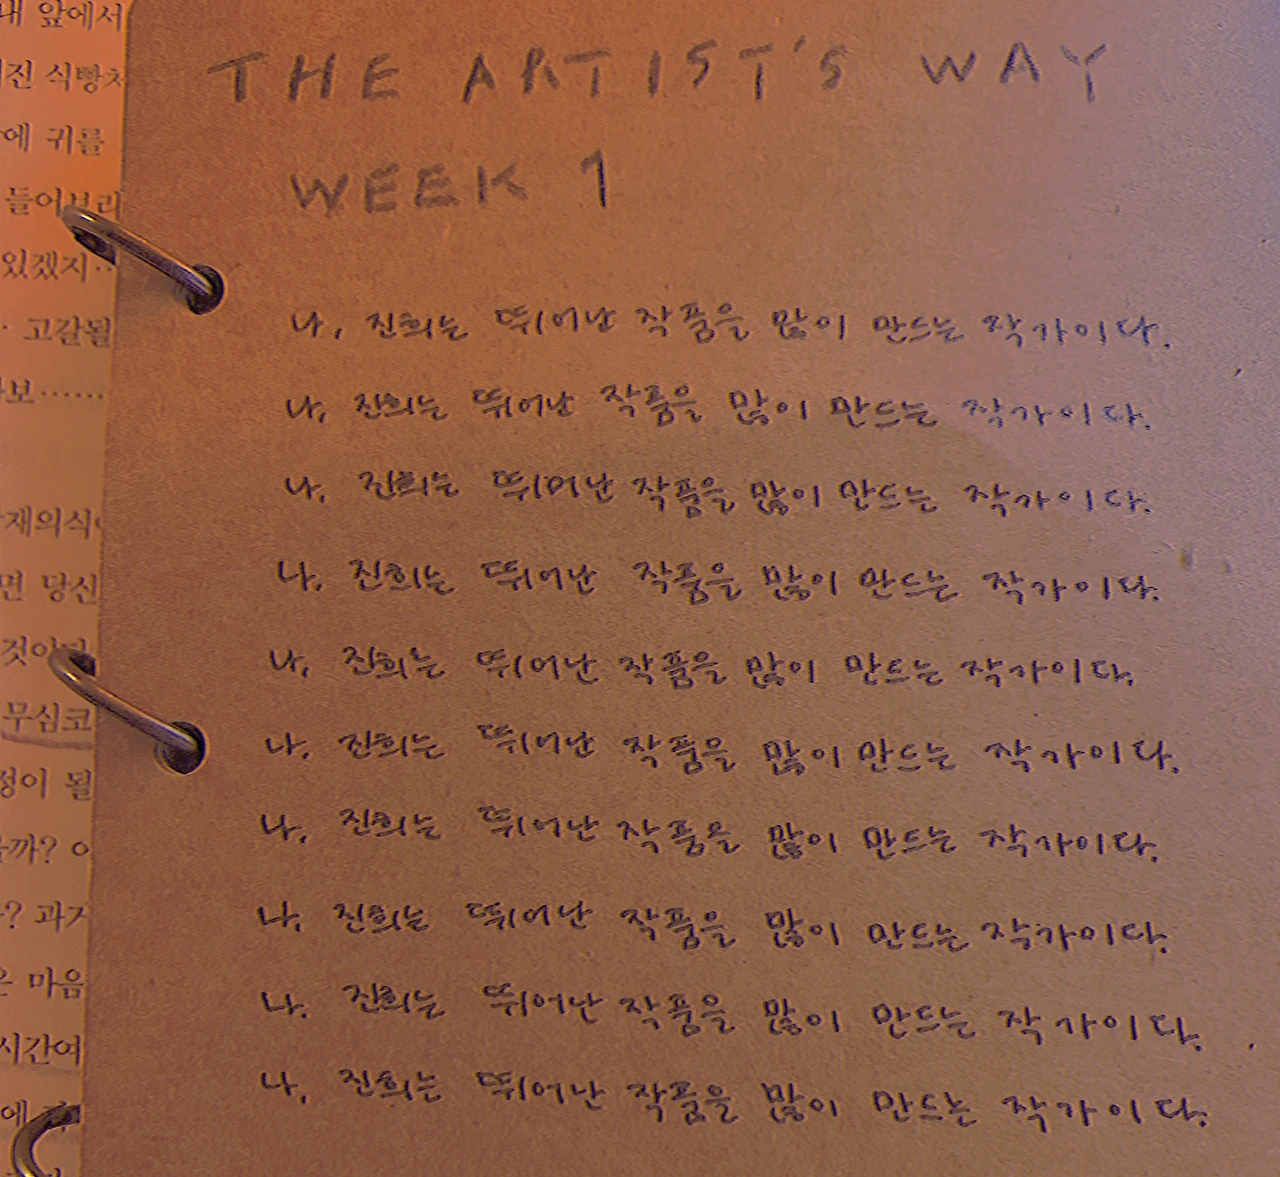 내 앞에서
진 식빵처
에 귀를
들어보리
있겠지…
고갈될
보……
재의식
면 당신
무심코
정이 될
까? 이
? 과거
마음
시간여
에
THE ARTIST'S WAY
WEEK 1
나, 진희는 뛰어난 작품을 많이 만드는 작가이다.
나, 진희는 뛰어난 작품을 많이 만드는 작가이다.
나, 진희는 뛰어난 작품을 많이 만드는 작가이다.
나, 진희는 뛰어난 작품을 많이 만드는 작가이다.
나, 진희는 뛰어난 작품을 많이 만드는 작가이다.
나, 진희는 뛰어난 작품을 많이 만드는 작가이다.
나, 진희는 뛰어난 작품을 많이 만드는 작가이다.
나, 진희는 뛰어난 작품을 많이 만드는 작가이다.
나, 진희는 뛰어난 작품을 많이 만드는 작가이다.
나, 진희는 뛰어난 작품을 많이 만드는 작가이다.